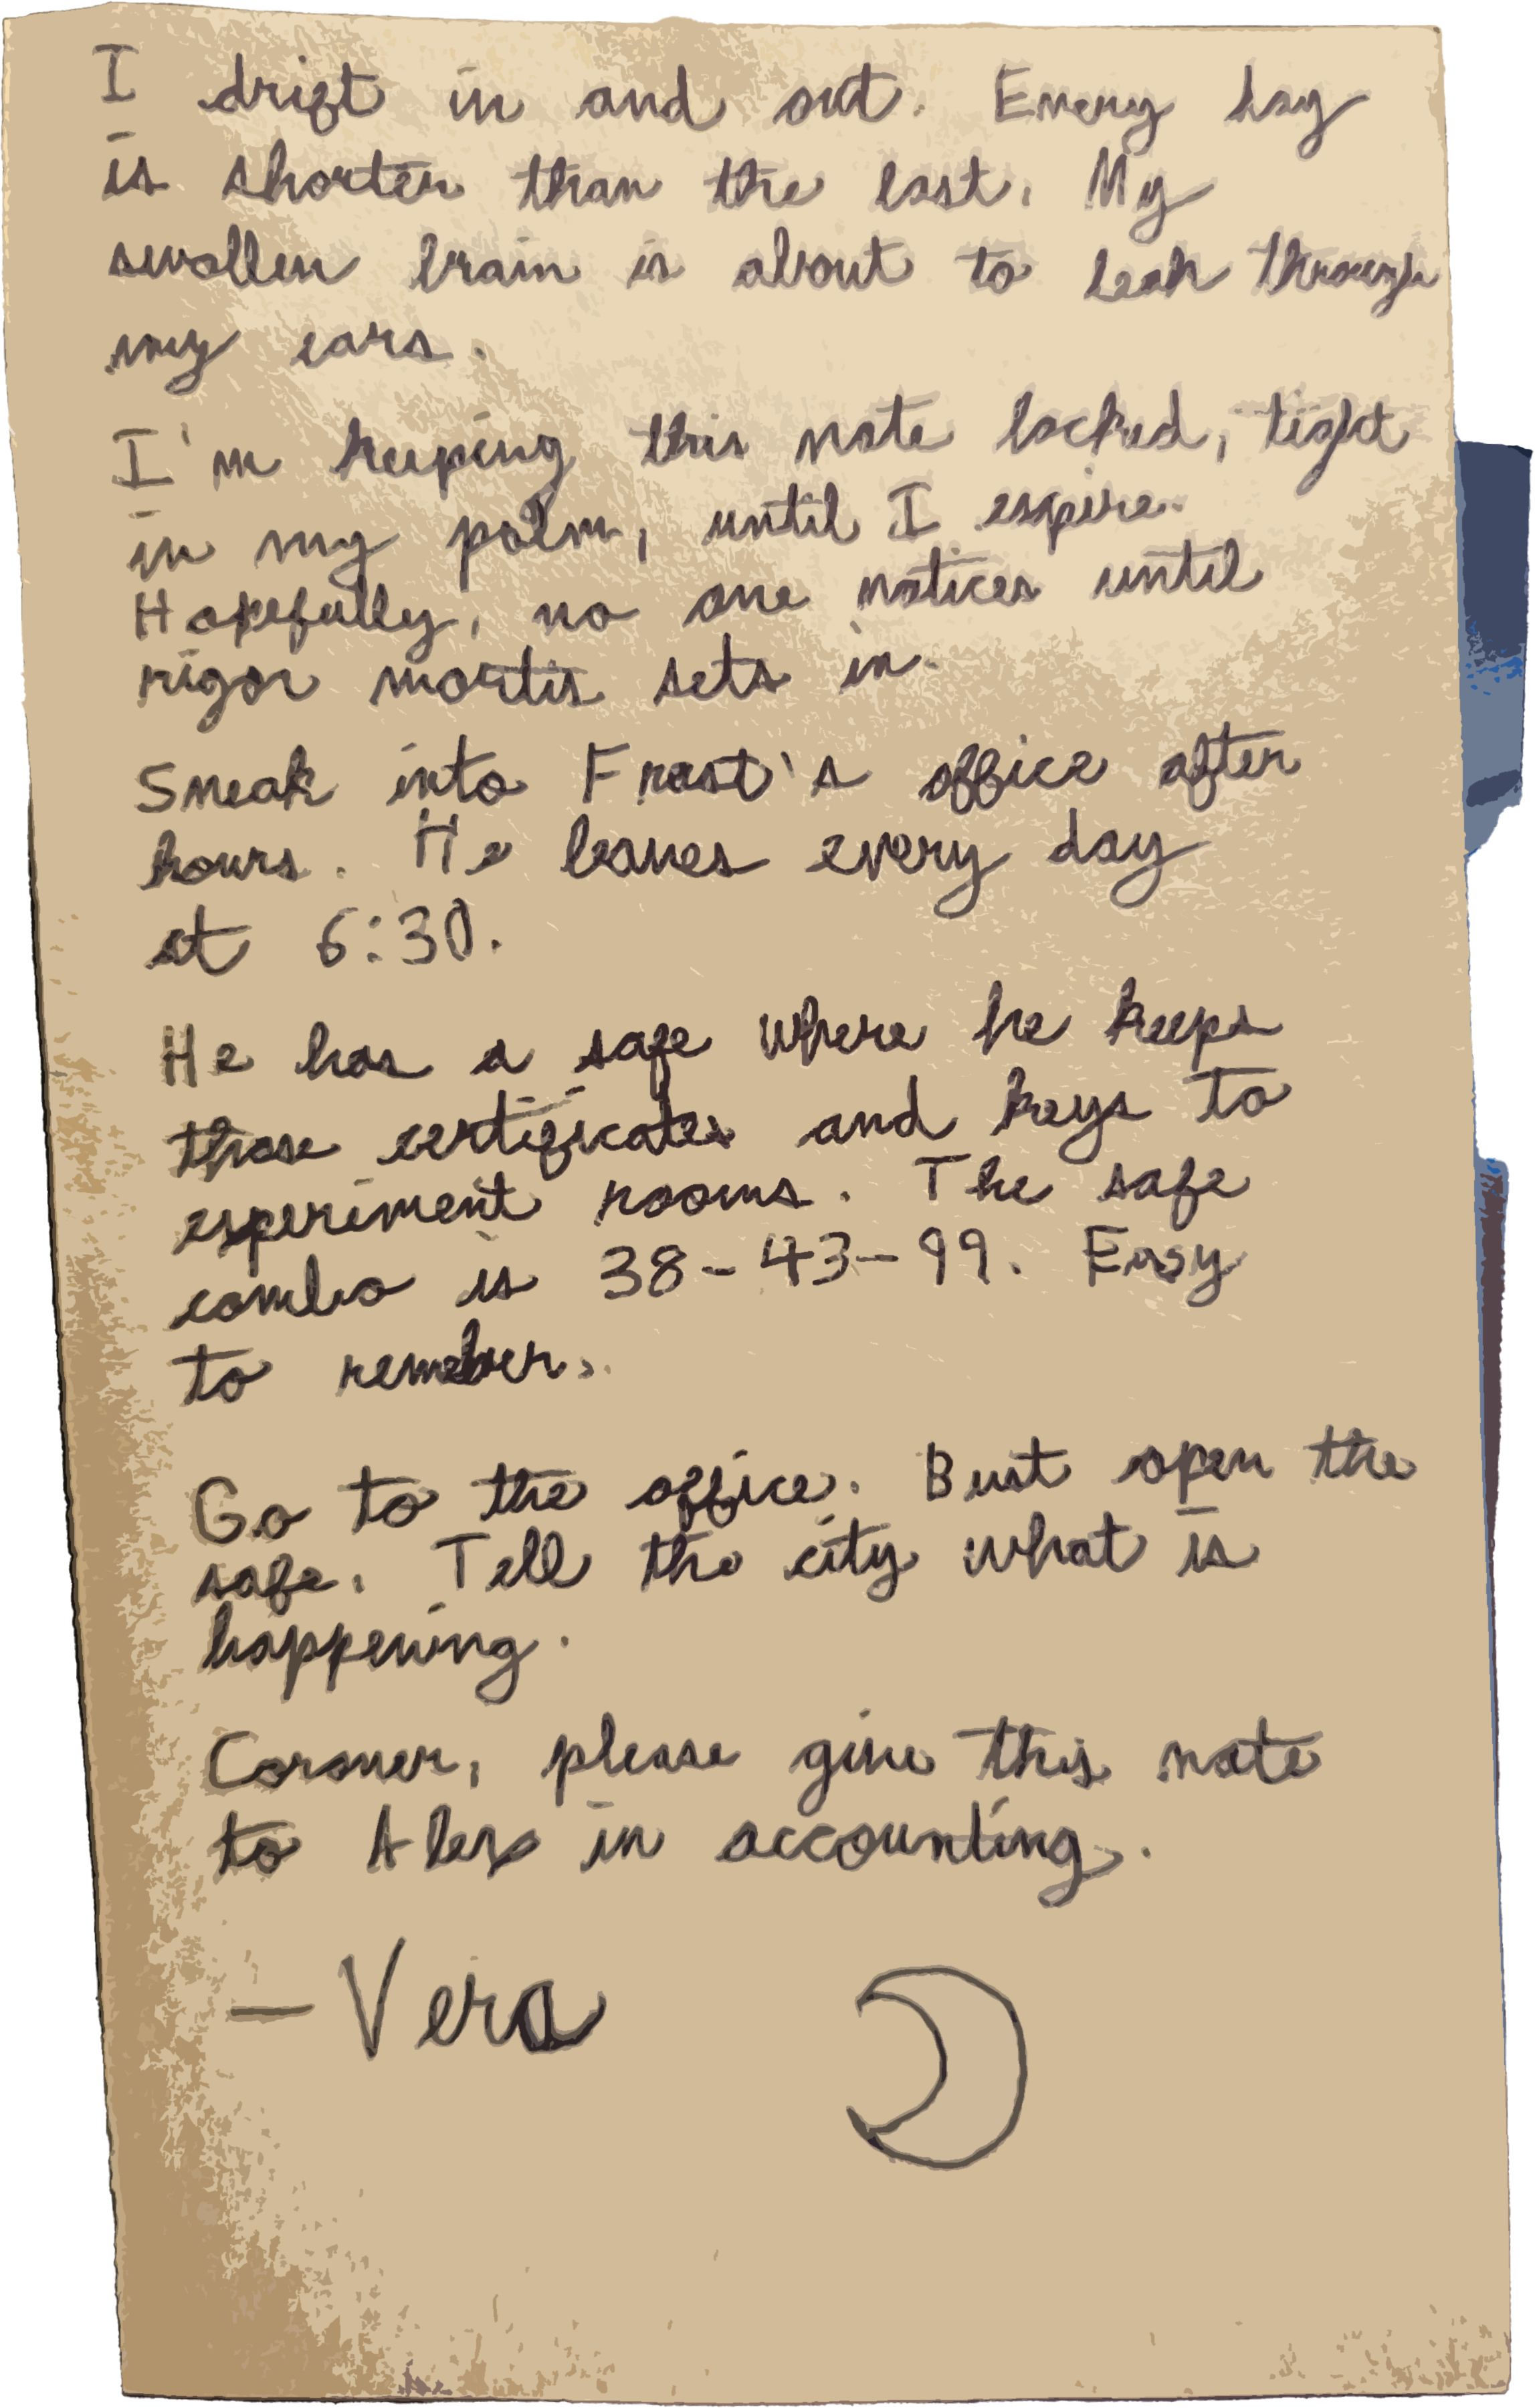 I drift in and out. Every day
is shorter than the last. My
swollen brain is about to leak through
my ears.
I'm keeping this note locked, tight
in my palm, until I expire.
Hopefully, no one notices until
rigor mortis sets in.
Sneak into Frost's office after
hours. He leaves every day
at 6:30.
He has a safe where he keeps
those certificates and keys to
experiment rooms. The safe
combo is 38-43-99. Easy
to remember.
Go to the office. Bust open the
safe. Tell the city what is
happening.
Coroner, please give this note
to Alex in accounting.
- Vera